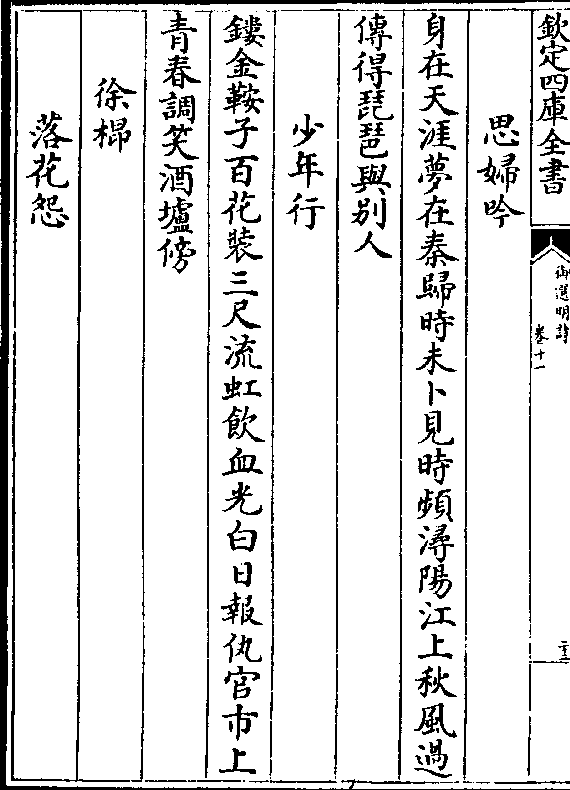 欽定四庫全書
御選明詩
卷十一
二十二
思婦吟
身在天涯夢在秦歸時未卜見時頻潯陽江上秋風過
傳得琵琶與别人
少年行
鏤金鞍子百花裝三尺流虹飲血光白日報仇宫市上
青春調笑酒壚傍
徐榻
落花怨